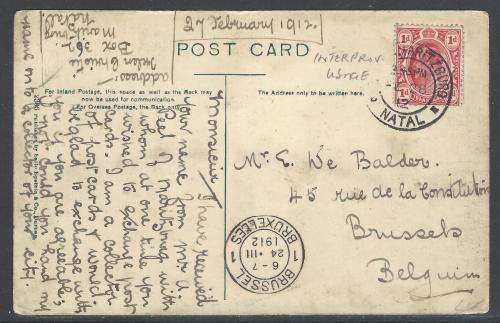 27 February 1912.
POST CARD
INTERPROV
USAGE
For Inland Postage, this space as well as the Back may
now be used for communication.
For Oversea Postage, the Back only.
The Address only to be written here.
address:
Box 367
Maritzburg
Natal
Monsieur, I have received
your name from Mr A.
Peel, Maritzburg with
whom at one time you
wished to exchange post
cards. I am a collector
of post cards & would
be glad to exchange with
you if you are agreeable;
if not could you hand my
name on to a collector of your city.
Mr E. De Balder.
45 rue de la Constitution
Brussels
Belgium
1d 1d
NATAL
BRUSSEL
1 6-7 1
24 III
1912
BRUXELLES